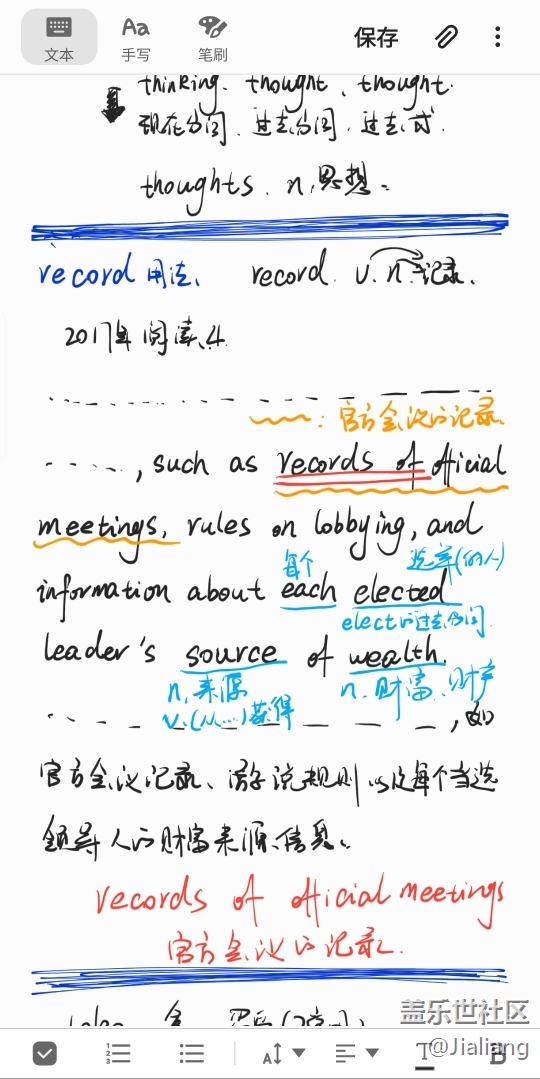 文本
Aa
手写
笔刷
保存
thinking、thought、thought.
现在分词、过去分词、过去式.
thoughts、n.思想。
record用法、 record. v. n.记录.
2017年阅读、4.
: 官方会议的记录.
....., such as records of official
meetings, rules on lobbying, and
每个 选举(的人)
information about each elected
elect的过去分词.
leader's source of wealth.
n.来源 n.财富、财产
v.(从…)获得
, 如
官方会议记录、游说规则以及每个当选
领导人的财富来源信息。
records of official meetings
官方会议的记录.
盖乐世社区
@Jialiang
T
B